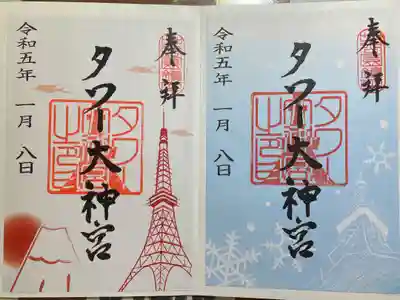 奉拝
タワー大神宮
令和五年 一月 八日
奉拝
タワー大神宮
令和五年 一月 八日